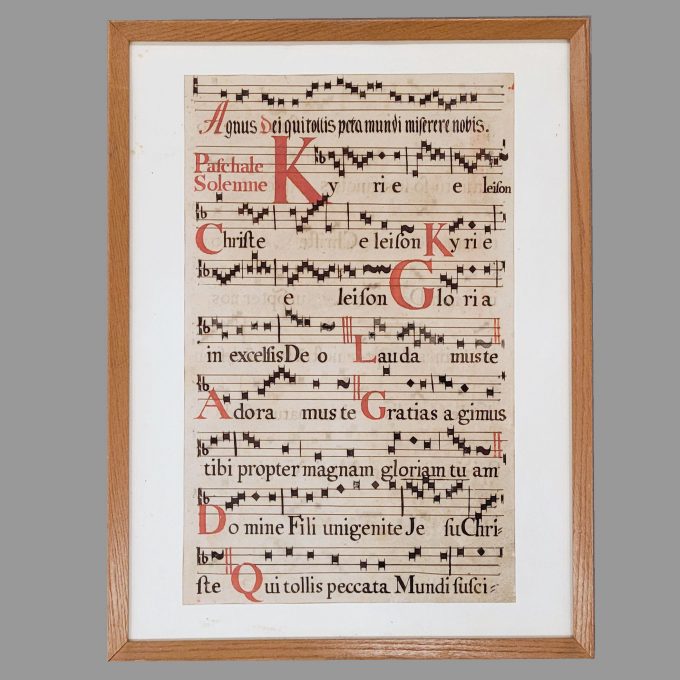 Agnus Dei qui tollis pcta mundi miserere nobis.
Paschale
Solemne
Ky ri e e leiſon
Chriſte e leiſon Ky ri e
e leiſon Glo ri a
in excelſis De o Lauda mus te
Adora mus te Gratias a gimus
tibi propter magnam gloriam tu am
Do mine Fili unigenite Je ſu Chri-
ſte Qui tollis peccata Mundi ſuſci-